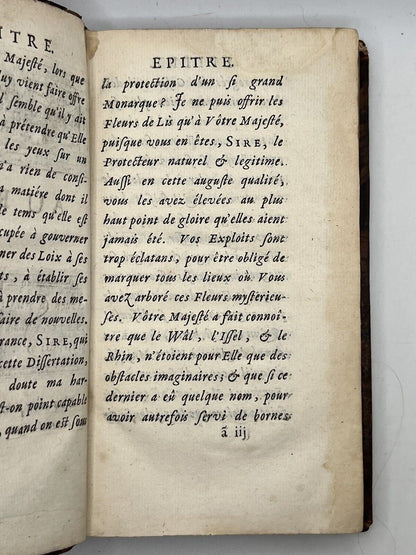 ITRE.
Majesté, lors que
luy vient faire offre
semble qu'il y ait
à prétendre qu'Elle
les yeux sur un
n'a rien de consi-
matiére dont il
le tems qu'elle est
cupée à gouverner
ner des Loix à ses
ts, à établir ses
à prendre des me-
faire de nouvelles.
rance, SIRE, qui
cette Dissertation,
doute ma har-
st-on point capable
, quand on est sous
EPITRE.
la protection d'un si grand
Monarque? Je ne puis offrir les
Fleurs de Lis qu'à Vôtre Majesté,
puisque vous en êtes, SIRE, le
Protecteur naturel & legitime.
Aussi en cette auguste qualité,
vous les avez élevées au plus
haut point de gloire qu'elles aient
jamais été. Vos Exploits sont
trop éclatans, pour être obligé de
marquer tous les lieux où Vous
avez arboré ces Fleurs mystérieu-
ses. Vôtre Majesté a fait connoî-
tre que le Wâl, l'Issel, & le
Rhin, n'étoient pour Elle que des
obstacles imaginaires; & que si ce
dernier a eû quelque nom, pour
avoir autrefois servi de bornes
ã iij